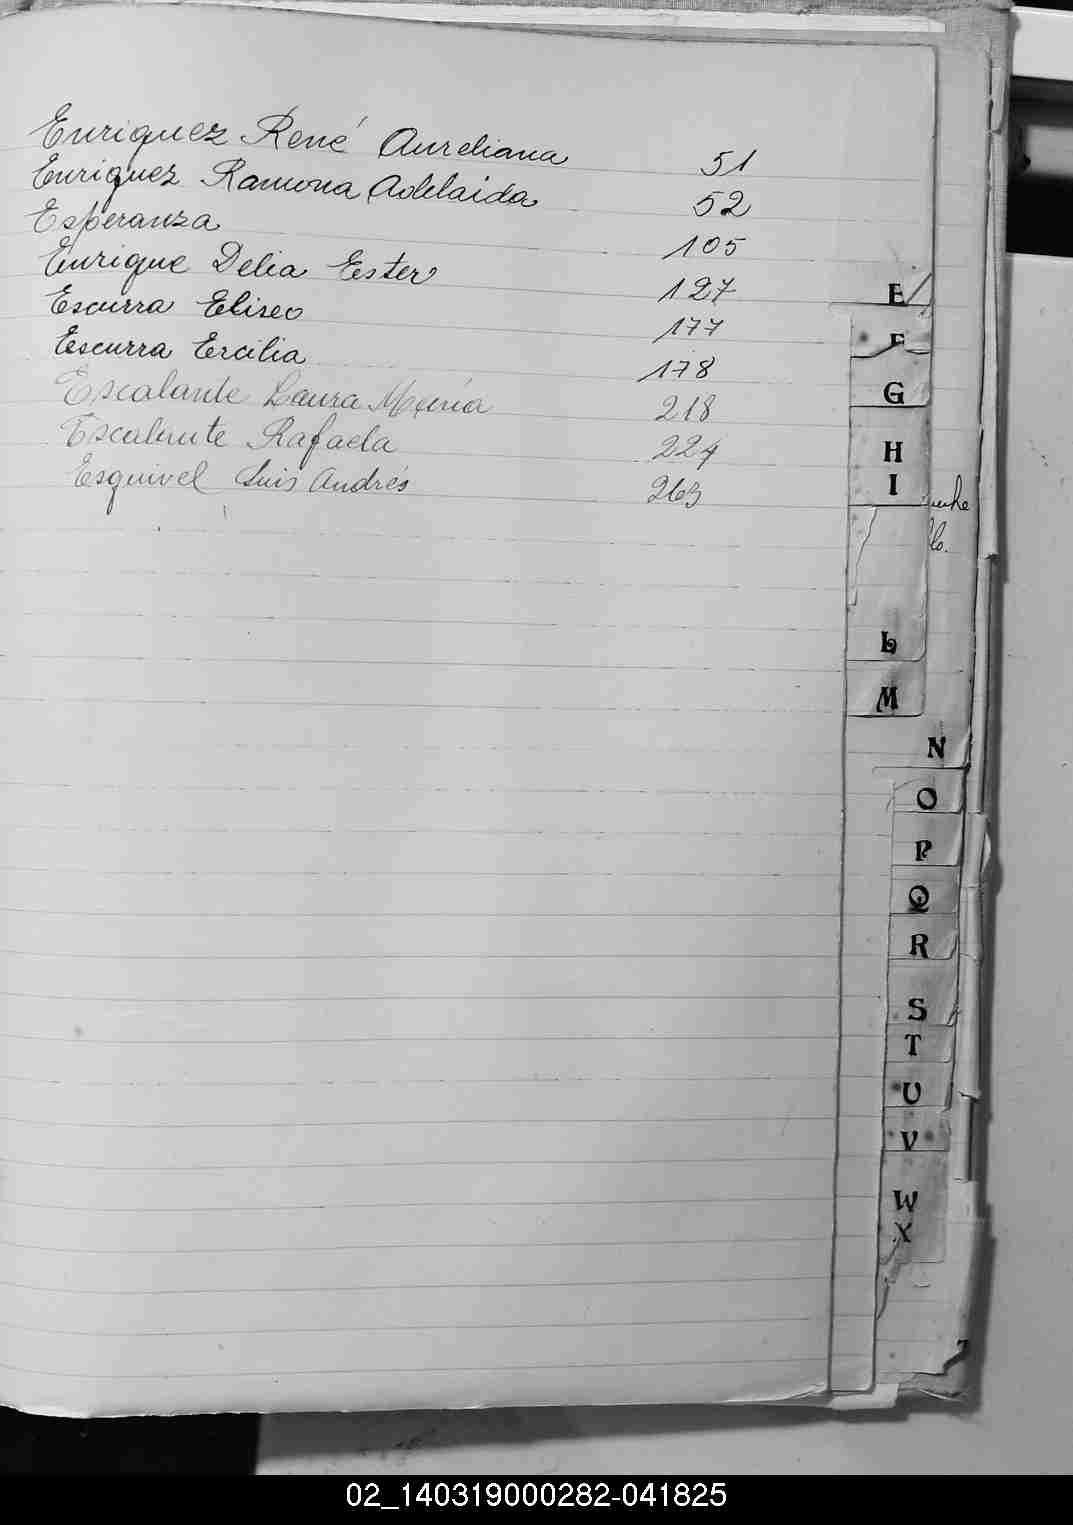 Enriquez René Aureliana 51
Enriquez Ramona Adelaida 52
Esperanza 105
Enrique Delia Ester 127
Escurra Eliseo 177
Escurra Ercilia 178
Escalante Laura María 218
Escalante Rafaela 224
Esquivel Luis Andrés 263
E
F
G
H
I
L
M
N
O
P
Q
R
S
T
U
V
W
X
02_140319000282-041825